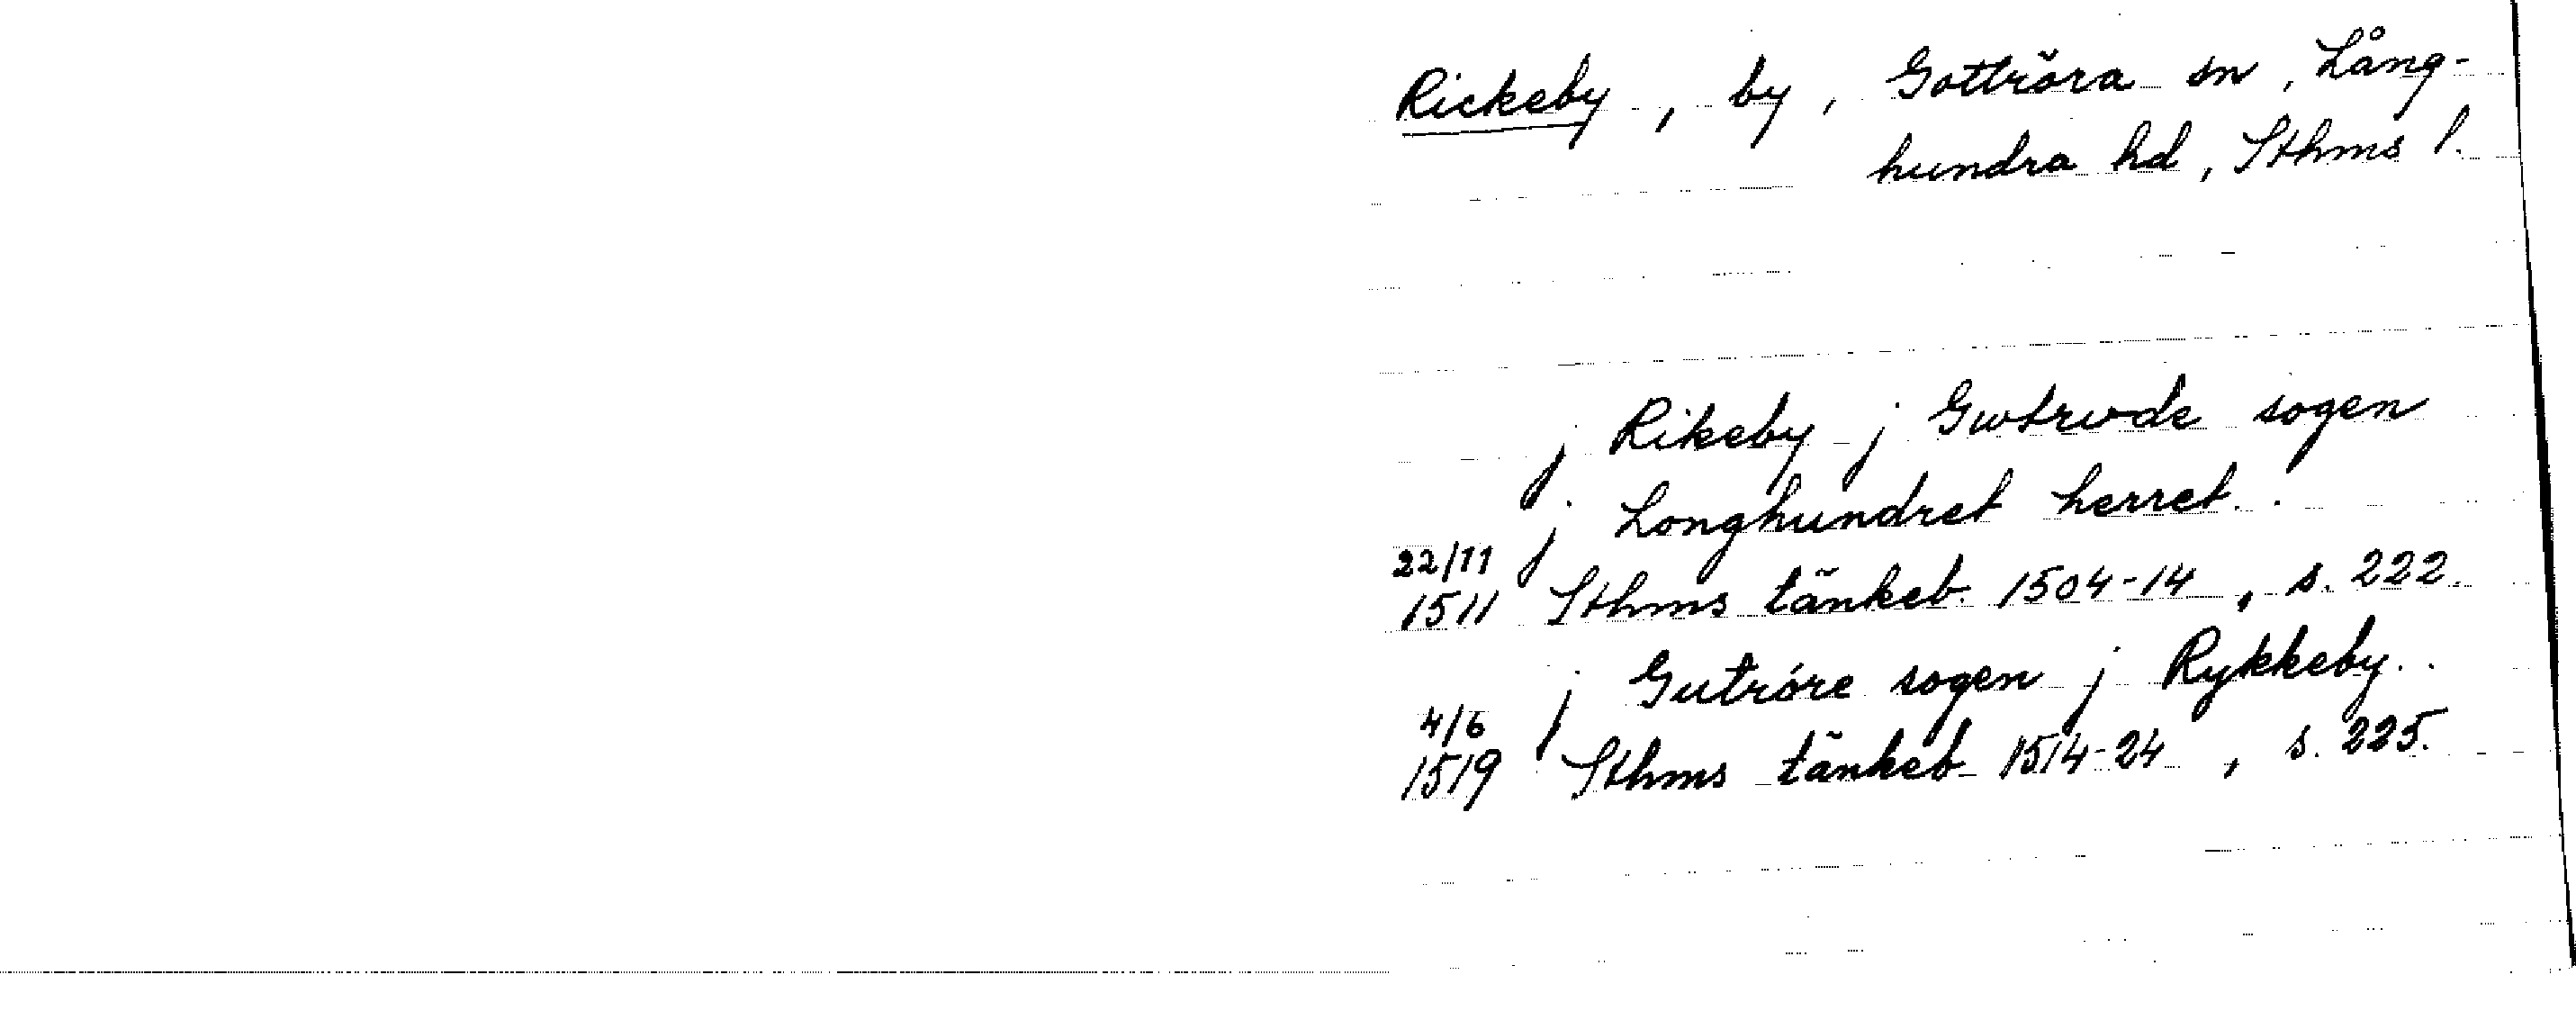 Rickeby, by, Gottröra sn, Lång-
hundra hd, Sthms l.
j Rikeby j Gwtrwde sogen
j Longhundret herret.
22/11
1511 Sthms tänkeb. 1504-14, s. 222.
j Gutröre sogen j Rykkeby..
4/6
1519 Sthms tänkeb 1514-24, s. 225.